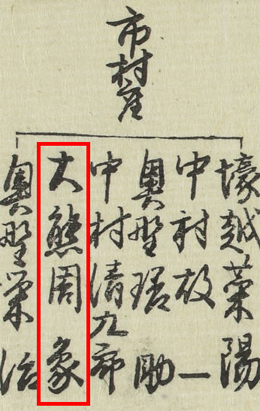 市村座
壕越菜陽
中村故一
奥野瑳助
中村清九郎
大熊周象
奥野栄治